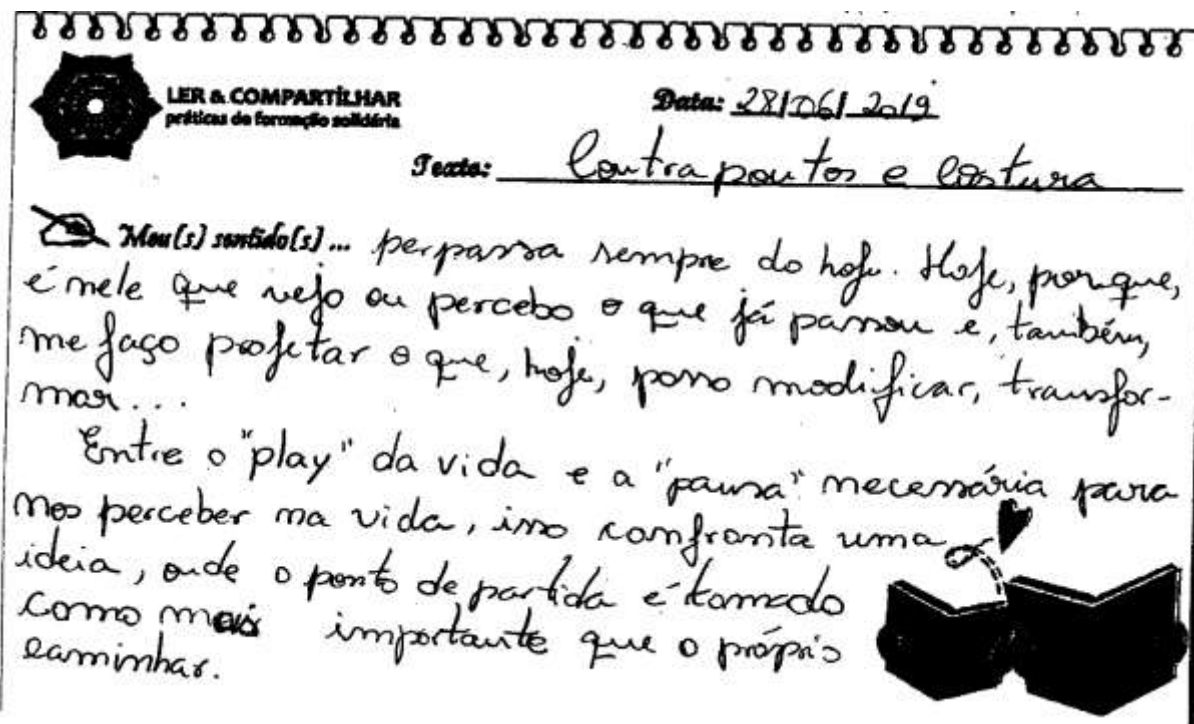 LER & COMPARTILHAR
práticas de formação solidária
Data: 28/06/2019
Texto: Contrapontos e costura
Meu(s) sentido(s)... perpassa sempre do hoje. Hoje, porque,
é nele que vejo ou percebo o que já passou e, também,
me faço projetar o que, hoje, posso modificar, transfor-
mar...
Entre o "play" da vida e a "pausa" necessária para
nos perceber na vida, isso confronta uma
ideia, onde o ponto de partida é tomado
como mais importante que o próprio
caminhar.